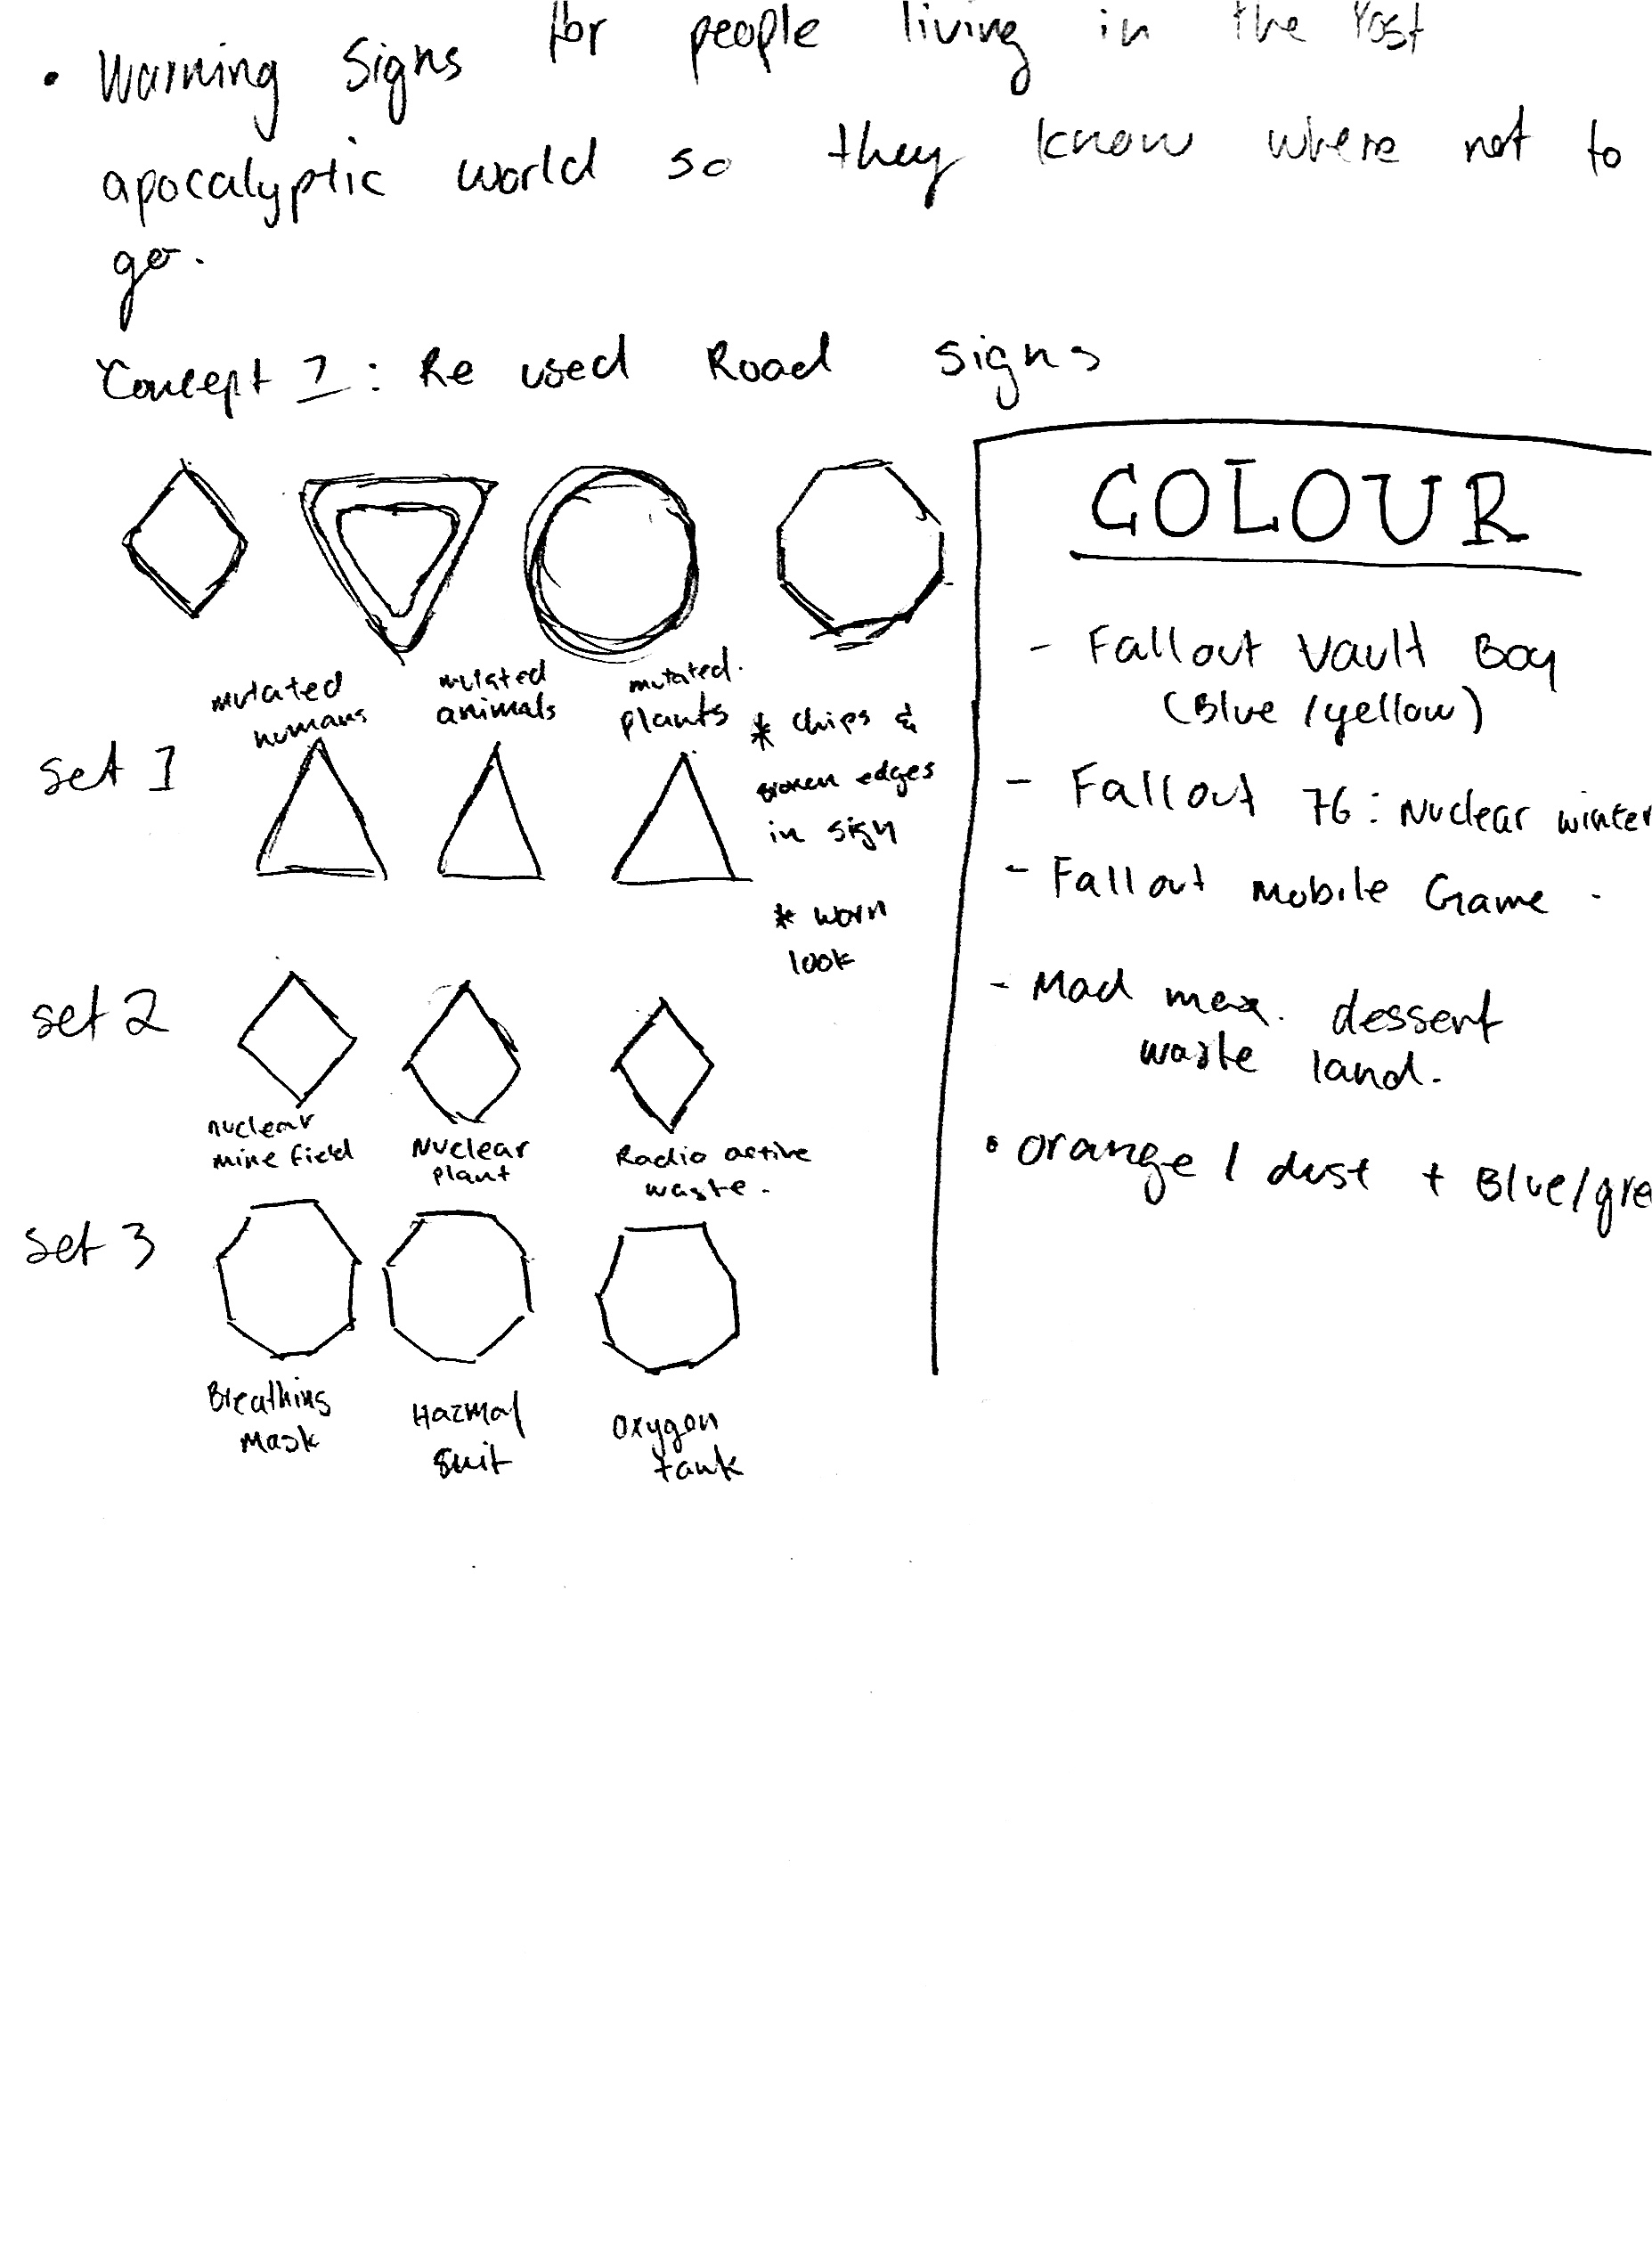 • Warning Signs for people living in the Post
apocalyptic world so they know where not to
go.
Concept 1: Re used Road Signs
mutated
humans
mutated
animals
mutated.
plants
set 1
* chips &
broken edges
in sign
* worn
look
set 2
nuclear
mine field
Nuclear
plant
Radio active
waste.
set 3
Breathing
Mask
Hazmat
Suit
Oxygen
tank
COLOUR
- Fallout Vault Boy
(Blue / yellow)
- Fallout 76: Nuclear winter
- Fallout Mobile Game.
- Mad max. dessert
waste land.
• orange / dust + Blue/gre